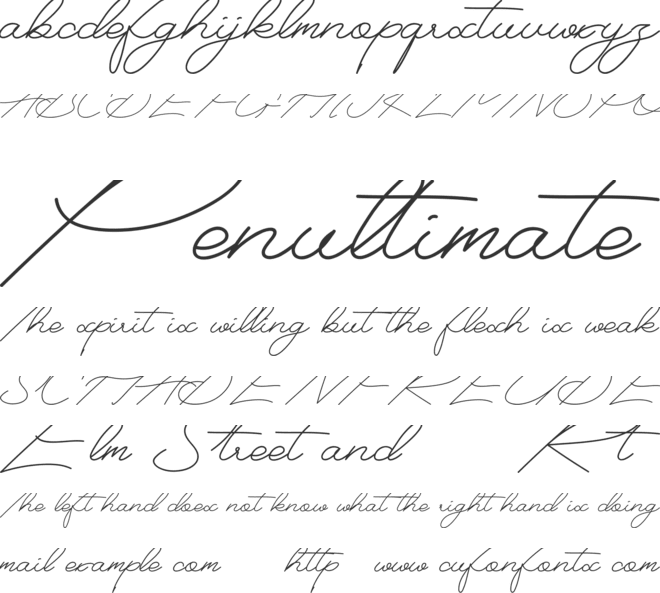 abcdefghijklmnopqrstuvwxyz
ABCDEFGHIJKLMNOPQ
Penultimate
The spirit is willing but the flesh is weak
SCHADENFREUDE
Elm Street and Rt
The left hand does not know what the right hand is doing
mail example com http www cufonfonts com